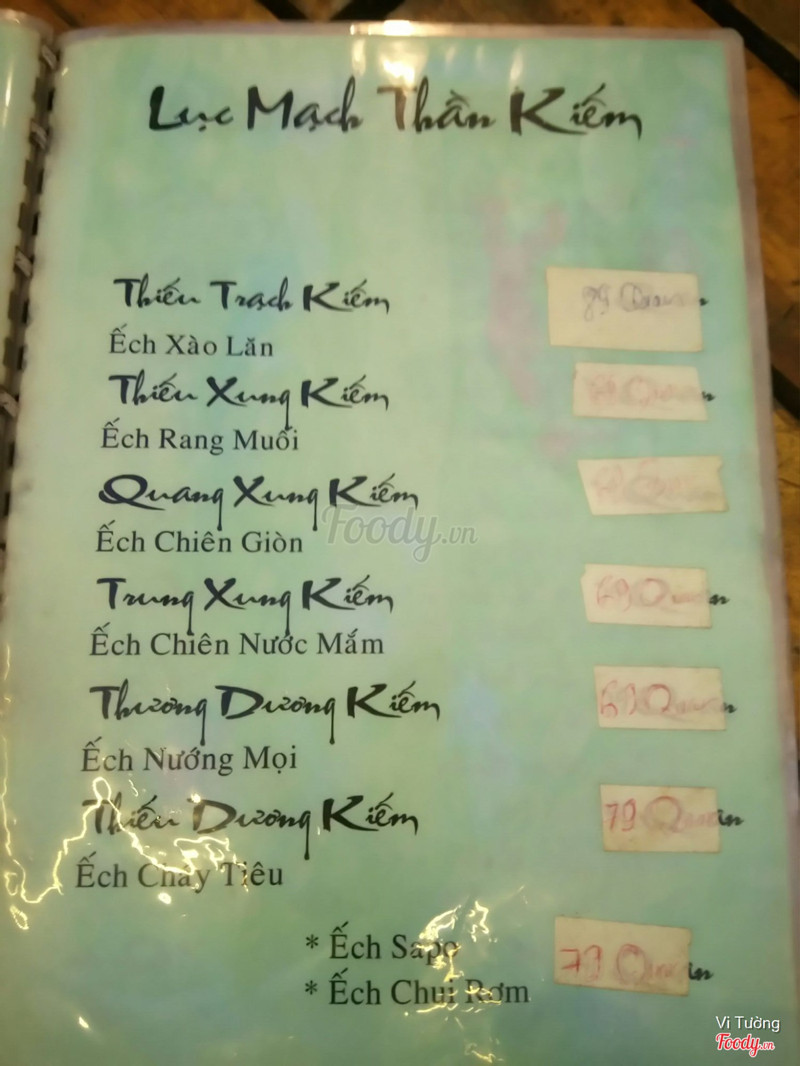 Lục Mạch Thần Kiếm
Thiếu Trạch Kiếm
Ếch Xào Lăn
Thiếu Xung Kiếm
Ếch Rang Muối
Quang Xung Kiếm
Ếch Chiên Giòn
Trung Xung Kiếm 69 Quan
Ếch Chiên Nước Mắm
Thương Dương Kiếm 69 Quan
Ếch Nướng Mọi
Thiếu Dương Kiếm 79 Quan
Ếch Cháy Tiêu
* Ếch Sapo 79 Quan
* Ếch Chui Rơm
Foody.vn
Vi Tường
Foody.vn